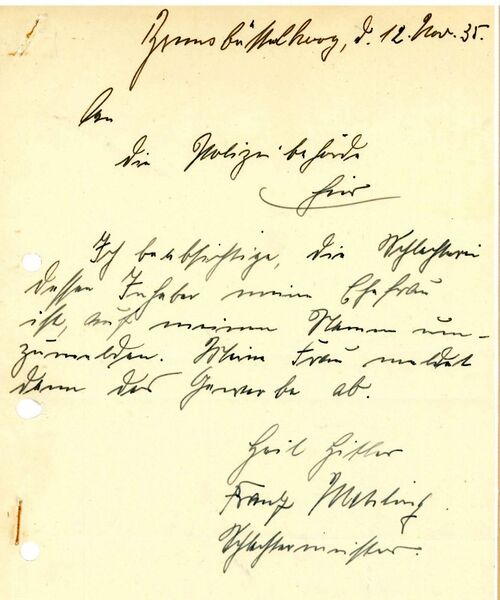 Brunsbüttelkoog, d. 12. Nov. 35.
An
die Polizeibehörde
hier
Ich beabsichtige, die Schlachterei
dessen Inhaber meine Ehefrau
ist, auf meinen Namen um-
zumelden. Meine Frau meldet
dann das Gewerbe ab.
Heil Hitler
Franz
Schlachtermeister.